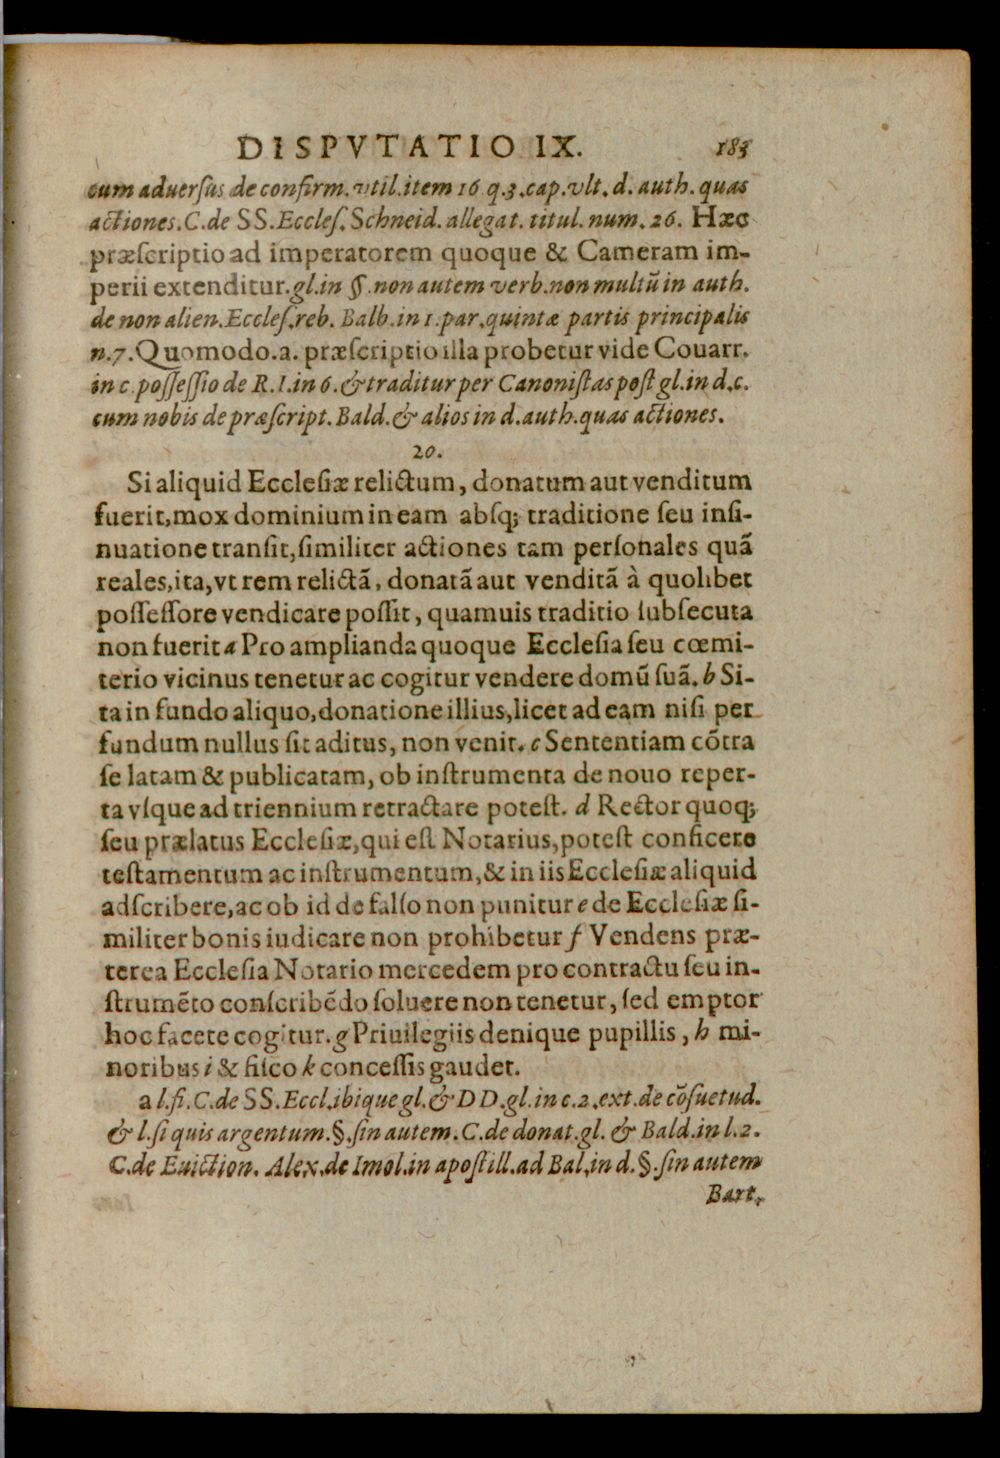 DISPVTATIO IX. 183
cum aduerſus de confirm. vtil. item 16 q.3. cap. vlt. d. auth. quas
actiones. C. de SS. Eccleſ. Schneid. allegat. titul. num. 26. Hæc
præſcriptio ad imperatorem quoque & Cameram im-
perii extenditur. gl. in §. non autem verb. non multũ in auth.
de non alien. Eccleſ. reb. Balb. in 1. par. quintæ partis principalis
n. 7. Quomodo. a. præſcriptio illa probetur vide Couarr.
in c. poſſeſſio de R. I. in 6. & traditur per Canoniſtas poſt gl. in d. c.
cum nobis de præſcript. Bald. & alios in d. auth. quas actiones.
20.
Si aliquid Eccleſiæ relictum, donatum aut venditum
fuerit, mox dominium in eam abſq; traditione ſeu inſi-
nuatione tranſit, ſimiliter actiones tam perſonales quã
reales, ita, vt rem relictã, donatã aut venditã à quolibet
poſſeſſore vendicare poſſit, quamuis traditio ſubſecuta
non fuerit a Pro amplianda quoque Eccleſia ſeu cœmi-
terio vicinus tenetur ac cogitur vendere domũ ſuã. b Si-
ta in fundo aliquo, donatione illius, licet ad eam niſi per
fundum nullus ſit aditus, non venit. c Sententiam cõtra
ſe latam & publicatam, ob inſtrumenta de nouo reper-
ta vſque ad triennium retractare poteſt. d Rector quoq;
ſeu prælatus Eccleſiæ, qui eſt Notarius, poteſt conficere
teſtamentum ac inſtrumentum, & in iis Eccleſiæ aliquid
adſcribere, ac ob id de falſo non punitur e de Eccleſiæ ſi-
militer bonis iudicare non prohibetur f Vendens præ-
terea Eccleſia Notario mercedem pro contractu ſeu in-
ſtrumẽto conſcribẽdo ſoluere non tenetur, ſed emptor
hoc facere cogitur. g Priuilegiis denique pupillis, h mi-
noribus i & fiſco k conceſſis gaudet.
a l. fi. C. de SS. Eccl. ibique gl. & DD. gl. in c. 2. ext. de cõſuetud.
& l. ſi quis argentum. §. ſin autem. C. de donat. gl. & Bald. in l. 2.
C. de Euiction. Alex. de Imol. in apoſtill. ad Bal. in d. §. ſin autem
Bart.